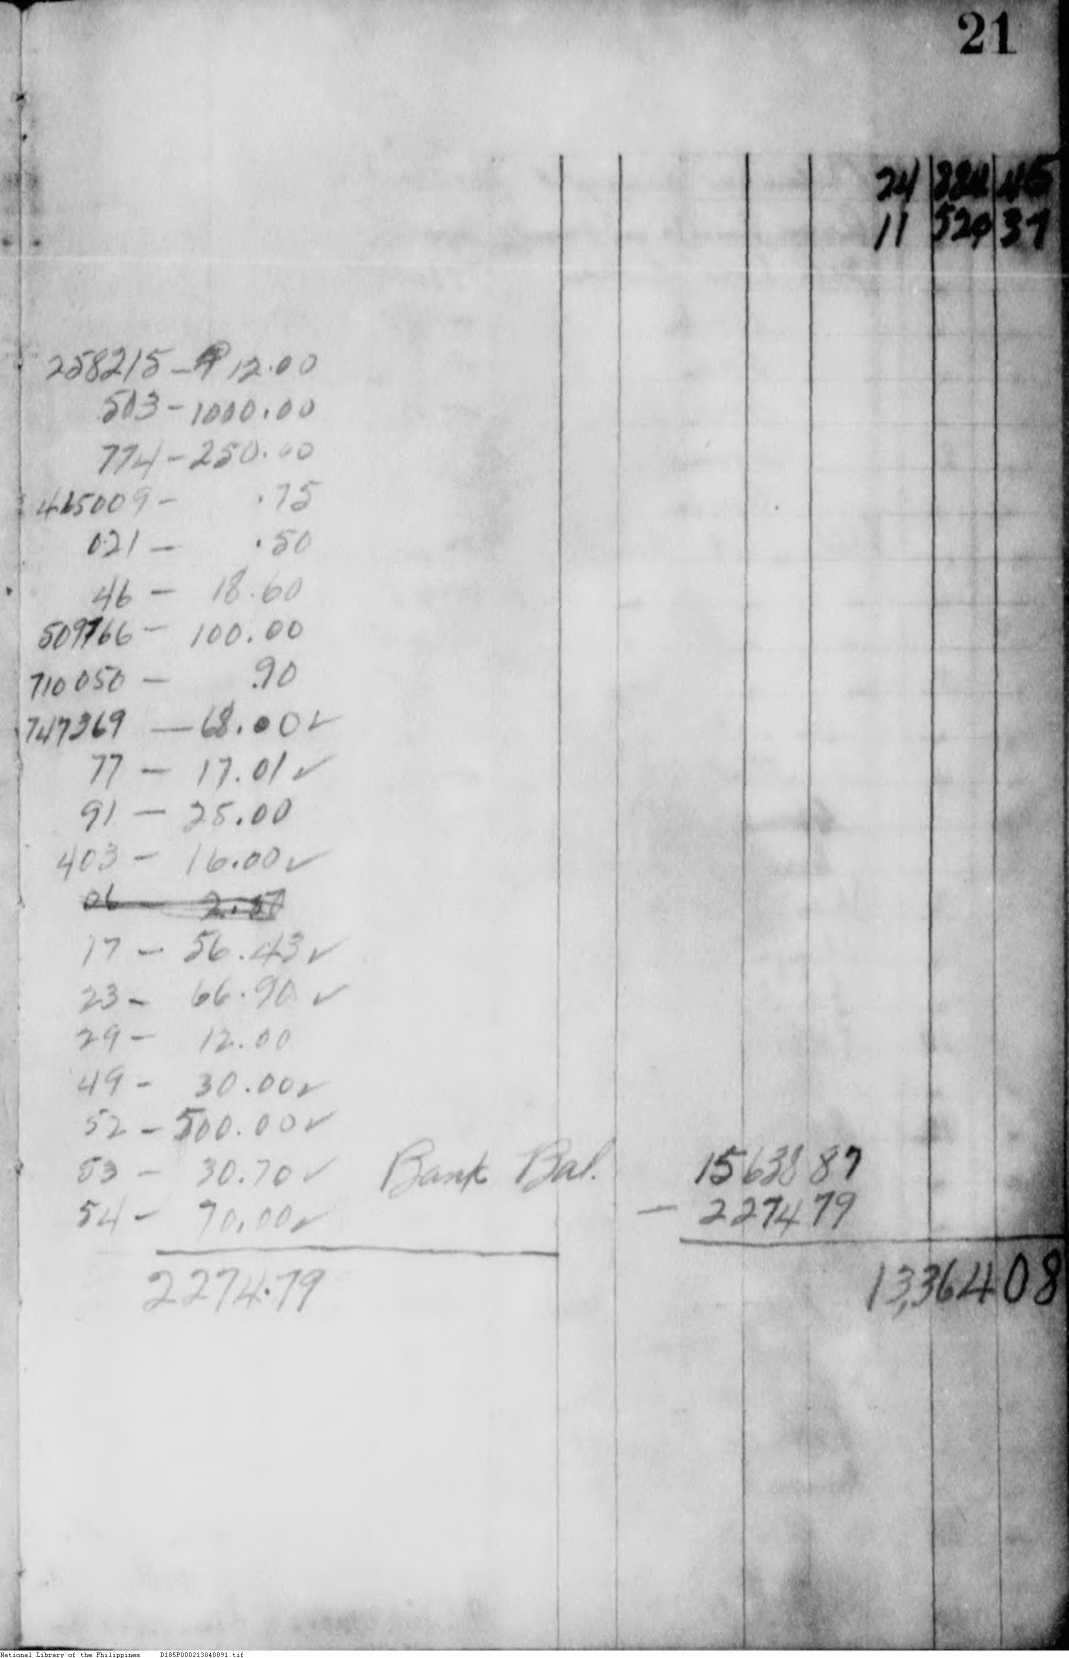 21
24 884 45
11 520 37
258215 - ₱ 12.00
503 - 1000.00
774 - 250.00
465009 - .75
021 - .50
46 - 18.60
509766 - 100.00
710050 - .90
747369 - 68.00 ✓
77 - 17.01 ✓
91 - 25.00
403 - 16.00 ✓
06 -
17 - 56.43 ✓
23 - 66.90 ✓
29 - 12.00
49 - 30.00 ✓
52 - 500.00 ✓
53 - 30.70 ✓ Bank Bal. 15638 87
54 - 70.00 ✓ - 2274 79
2274.79 13,364 08
National Library of the Philippines D185P000213040891.tif